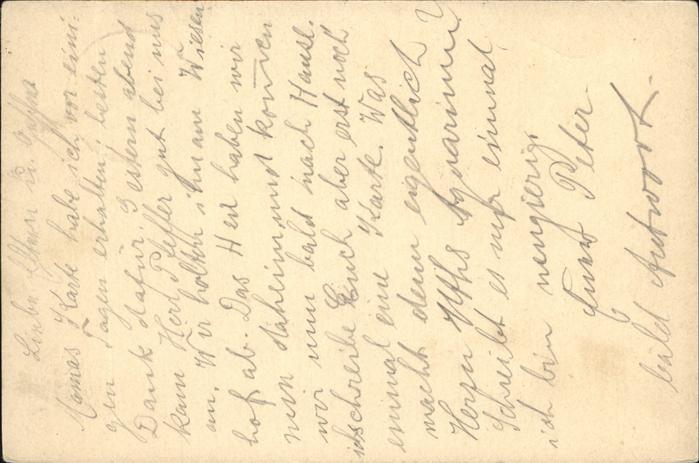 Liebe Eltern u.
Mamas Karte habe ich vor eini-
gen Tagen erhalten, besten
Dank dafür. Gestern abend
kam Herr Pfeffer gut bei uns
an. Wir holten ihn am Wiesen
hof ab. Das Heu haben wir
nun daheim und können
wir nun bald nach Hause.
ich schreibe Euch aber erst noch
einmal eine Karte. Was
macht denn eigentlich
Herrn Aquarium?
Schreibt es mir einmal
ich bin neugierig.
Euer Peter
bald Antwort.